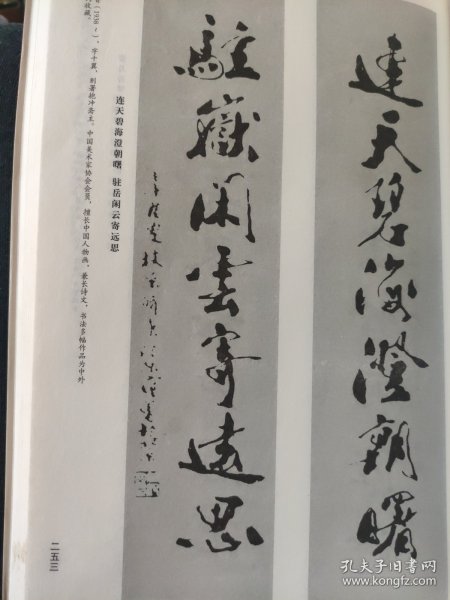 连天碧海澄朝曙
駐嶽閑雲寄遠思
连天碧海澄朝曙 驻岳闲云寄远思
(1938~),字十翼,别署抱冲斋主。中国美术家协会会员,擅长中国人物画,兼长诗文,书法多幅作品为中外
收藏。
二五三
孔夫子旧书网
www.kongfz.com